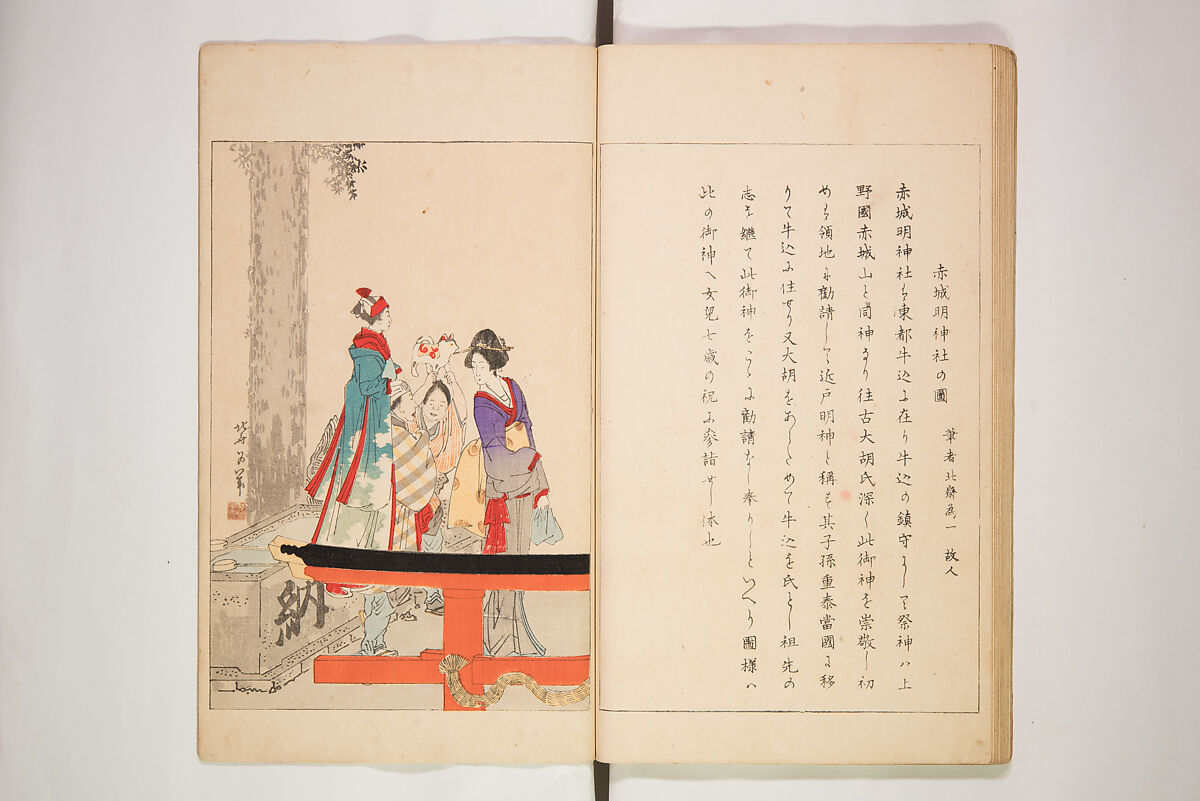 赤城明神社の圖
筆者北齋為一 故人
赤城明神社ハ東都牛込に在り牛込の鎮守にして祭神ハ上
野國赤城山と同神なり往古大胡氏深く此御神を崇敬し初
めハ領地に勸請して近戸明神と稱す其子孫重泰當國に移
りて牛込に住せり又大胡をあらためて牛込を氏とし祖先の
志を継て此御神をこゝに勸請なし奉りしといへり圖様ハ
此の御神へ女兒七歳の祝に參詣せし体也
納